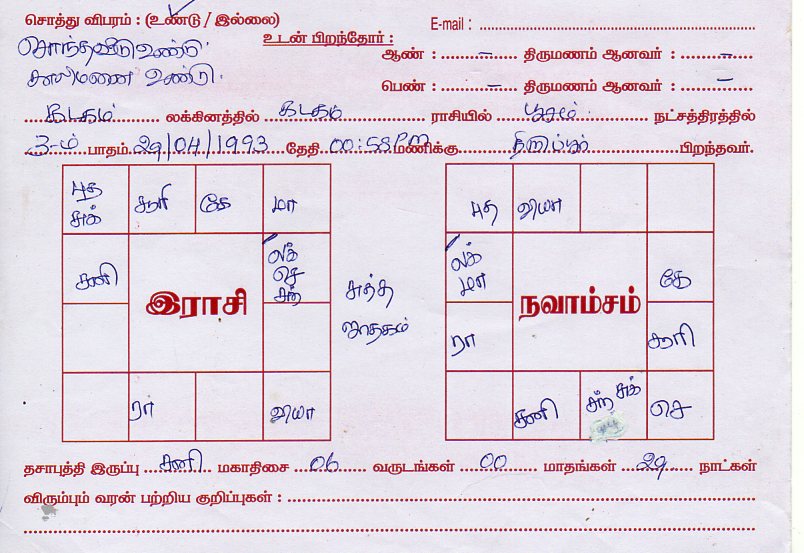 சொத்து விபரம் : (உண்டு / இல்லை)
E-mail :
சொந்தவீடு உண்டு.
உடன் பிறந்தோர் :
ஆண் : – திருமணம் ஆனவர் : –
காலிமனை உண்டு.
பெண் : – திருமணம் ஆனவர் : –
கடகம் லக்கினத்தில் கடகம் ராசியில் பூசம் நட்சத்திரத்தில்
3-ம் பாதம் 29/04/1993 தேதி 00:58 PM மணிக்கு பிறந்தவர்.
புத சுக் சூரி கே மா
லக் செ சந்
சனி
இராசி
ரா வியா
சுத்த ஜாதகம்
புத வியா
லக் மா கே
நவாம்சம்
ரா சூரி
சனி சந் சுக் செ
தசாபுத்தி இருப்பு சனி மகாதிசை 06 வருடங்கள் 00 மாதங்கள் 29 நாட்கள்
விரும்பும் வரன் பற்றிய குறிப்புகள் :